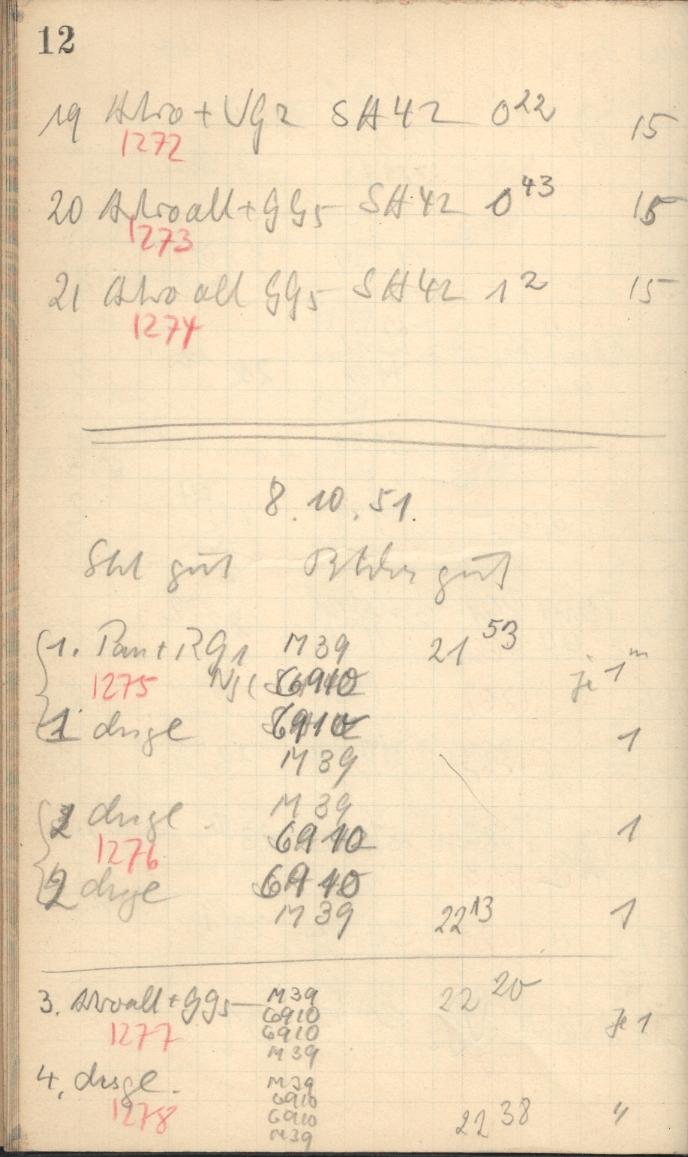 12
19 Astro + VG2 SA 42 0 22 15
1272
20 Astro alt + GG5 SA 42 0 43 15
1273
21 Astro alt GG5 SA 42 1 2 15
1274
8. 10. 51.
gut Bilder gut
1. Pan + RG1 M 39 21 53
1275 6910 je 1 m
1 dsgl 6910 1
M 39
2 dsgl M 39
1276 6910 1
2 dsgl 6910
M 39 22 13 1
3. Astro alt + GG5 — M 39 22 20
6910
1277 6910 je 1
M39
4. dsgl. M39
6910
1278 6910 22 38 "
M39